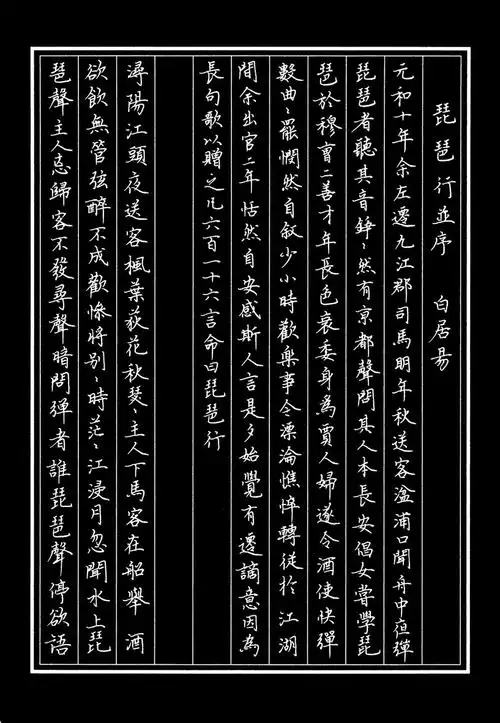 琵琶行並序 白居易
元和十年余左遷九江郡司馬明年秋送客湓浦口聞舟中夜彈
琵琶者聽其音錚〻然有京都聲問其人本長安倡女嘗學琵
琶於穆曹二善才年長色衰委身為賈人婦遂令酒使快彈
數曲〻罷憫然自叙少小時歡樂事今漂淪憔悴轉徙於江湖
間余出官二年恬然自安感斯人言是夕始覺有遷謫意因為
長句歌以贈之凡六百一十六言命曰琵琶行
潯陽江頭夜送客楓葉荻花秋瑟〻主人下馬客在船舉酒
欲飲無管弦醉不成歡慘將别〻時茫〻江浸月忽聞水上琵
琶聲主人忘歸客不發尋聲暗問彈者誰琵琶聲停欲語